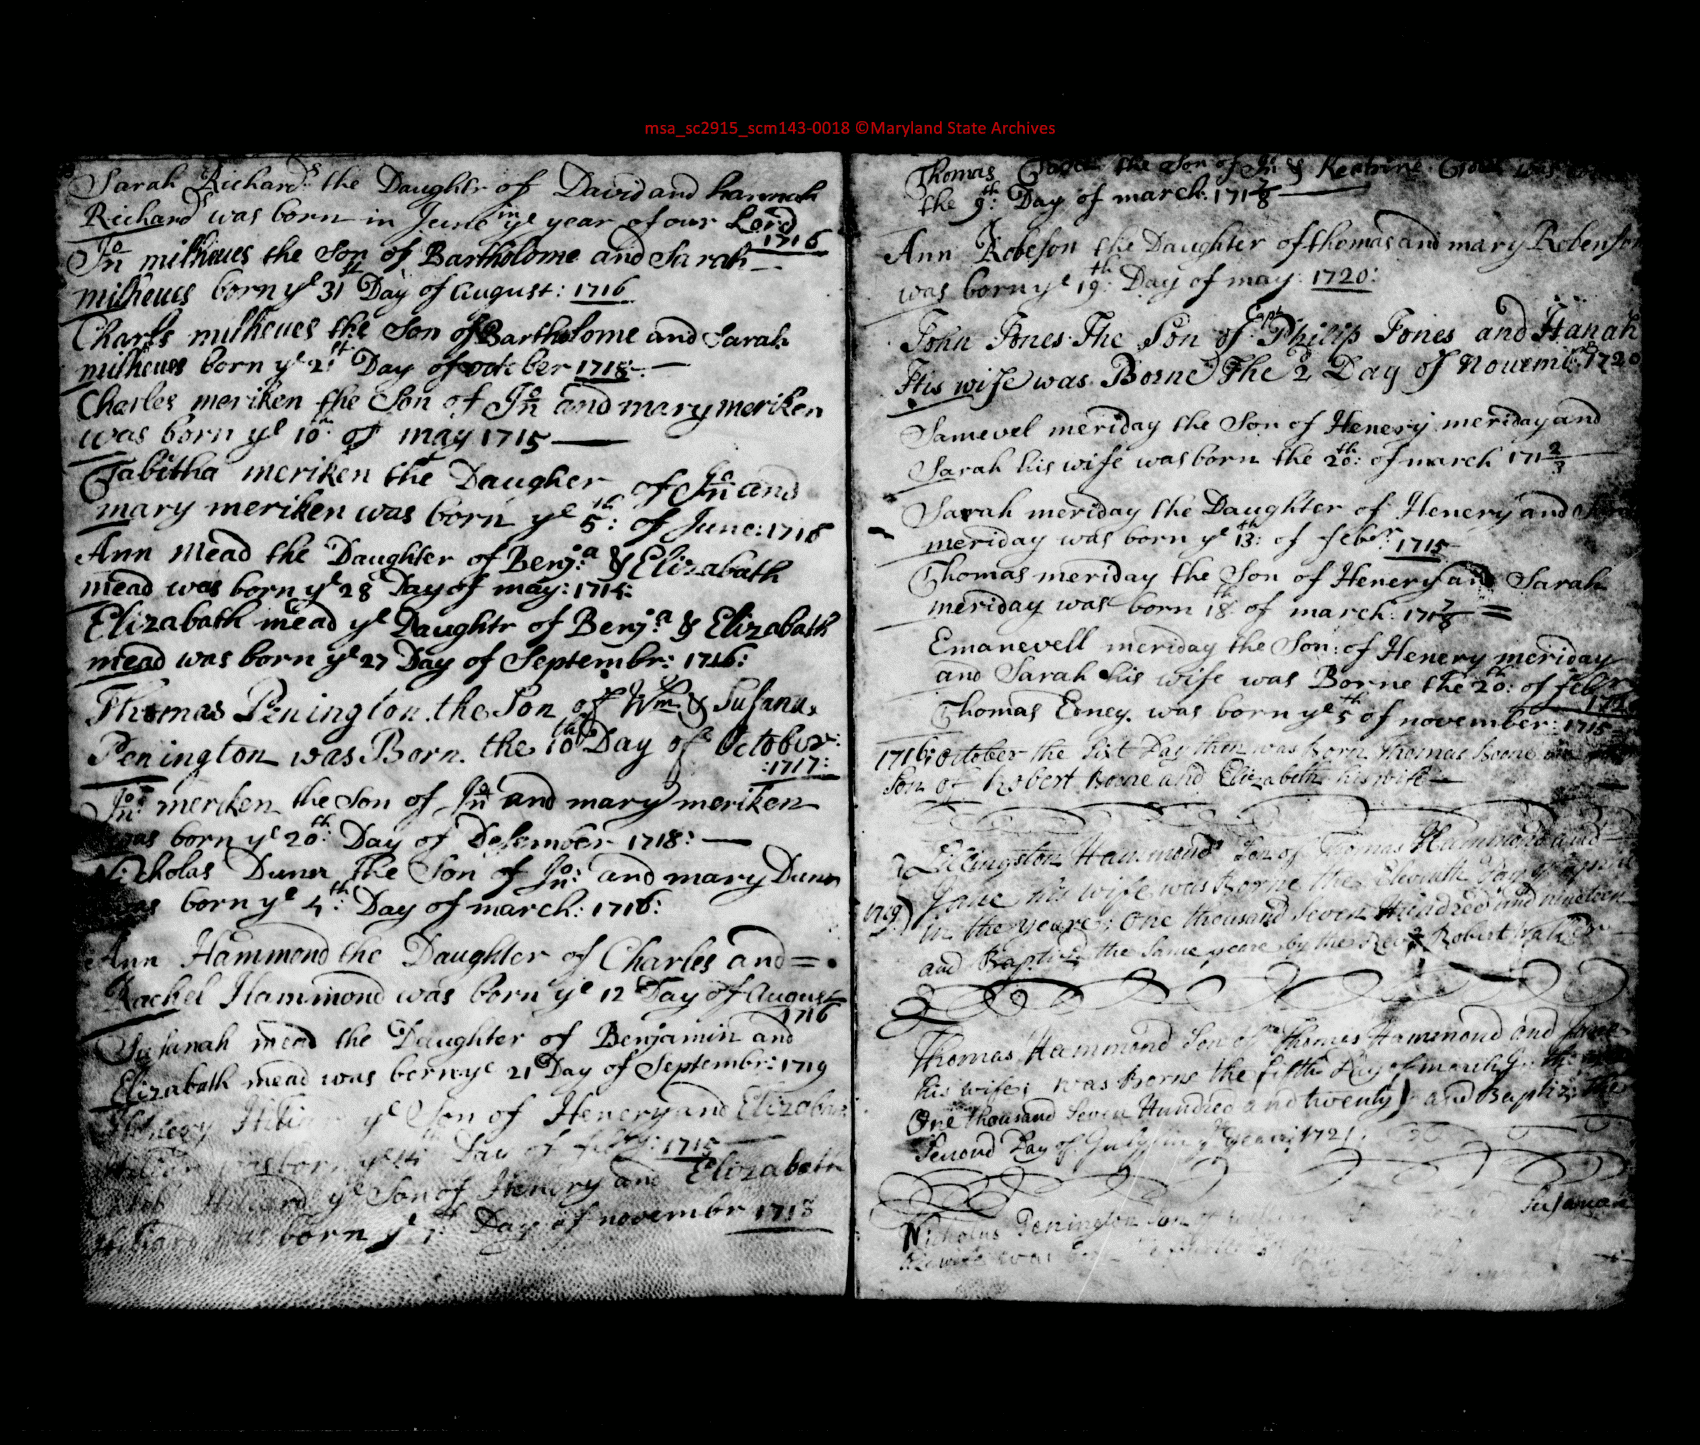 msa_sc2915_scm143-0018 ©Maryland State Archives
Sarah Richards the Daughtr of David and hannah
Richards was born in June in ye year of our Lord
1716
Jno milhewes the Son of Bartholome and Sarah
milhewes born ye 31st Day of august: 1716
Charls milhewes the Son of Bartholome and Sarah
milhewes born ye 2: Day of october 1718
Charles meriken the Son of Jno and mary meriken
was born ye 10th of may 1715
Tabitha meriken the Daugher of Jno and
mary meriken was born ye 5th: of June: 1716
Ann Mead the Daughter of Benja & Elizabath
mead was born ye 28 Day of may: 1715:
Elizabath mead ye Daughtr of Benja & Elizabath
mead was born ye 27 Day of Septembr: 1716:
Thomas Penington the Son of Wm & Susana
Penington was Born the 10th Day of October:
:1717:
Jno meriken the Son of Jno and mary meriken
was born ye 20th: Day of Desember 1718:
Nicholas Duner the Son of Jno: and mary Duner
was born ye 4th: Day of march: 1716:
Ann Hammond the Daughter of Charles and
Rachel Hammond was born ye 12 Day of August
1716
Susanah mead the Daughter of Benjamin and
Elizabath mead was born ye 21 Day of Septembr: 1719
ye Son of Henery and Elizabath
was born ye 14th Day of febry: 1715
ye Son of Henery and Elizabath
was born ye Day of novembr 1718
Thomas the Son of Jno & was
the 9th: Day of march: 171 7/8
Ann Robeson the Daughter of thomas and mary Robenson
was born ye 19th: Day of may: 1720:
John Jones The Son of Capt Philip Jones and Hanah
His wife was Borne The 2d Day of Nouemb 1720
Samevel meriday the Son of Henery meriday and
Sarah his wife was born the 20th: of march 171 2/3
Sarah meriday the Daughter of Henery and Sarah
meriday was born ye 13th: of febr: 1715
Thomas meriday the Son of Henery and Sarah
meriday was born 18th of march: 171 7/8
Emanevell meriday the Son: of Henery meriday
and Sarah his wife was Borne the 20th: of febry
Thomas Edney was born ye 5th of november: 1715
1716: october the Sixt Day then was born Thomas Borne
Son of Robert Borne and Elizabeth his wife
Hammond Son of Thomas Hammond and
Jane his wife was Borne the Eleventh Day of
1719) in the yeare: One thousand Seven Hundred and nineteen
and Baptized the Same yeare by the Revd Robert
Thomas Hammond Son of Thomas Hammond and Jane
his wife; was Borne the fifth Day of march
One thousand Seven Hundred and twenty) and Baptiz'd the
Second Day of July in ye yeare 1721.
Nicholas Penington Son of Susanah
his wife was